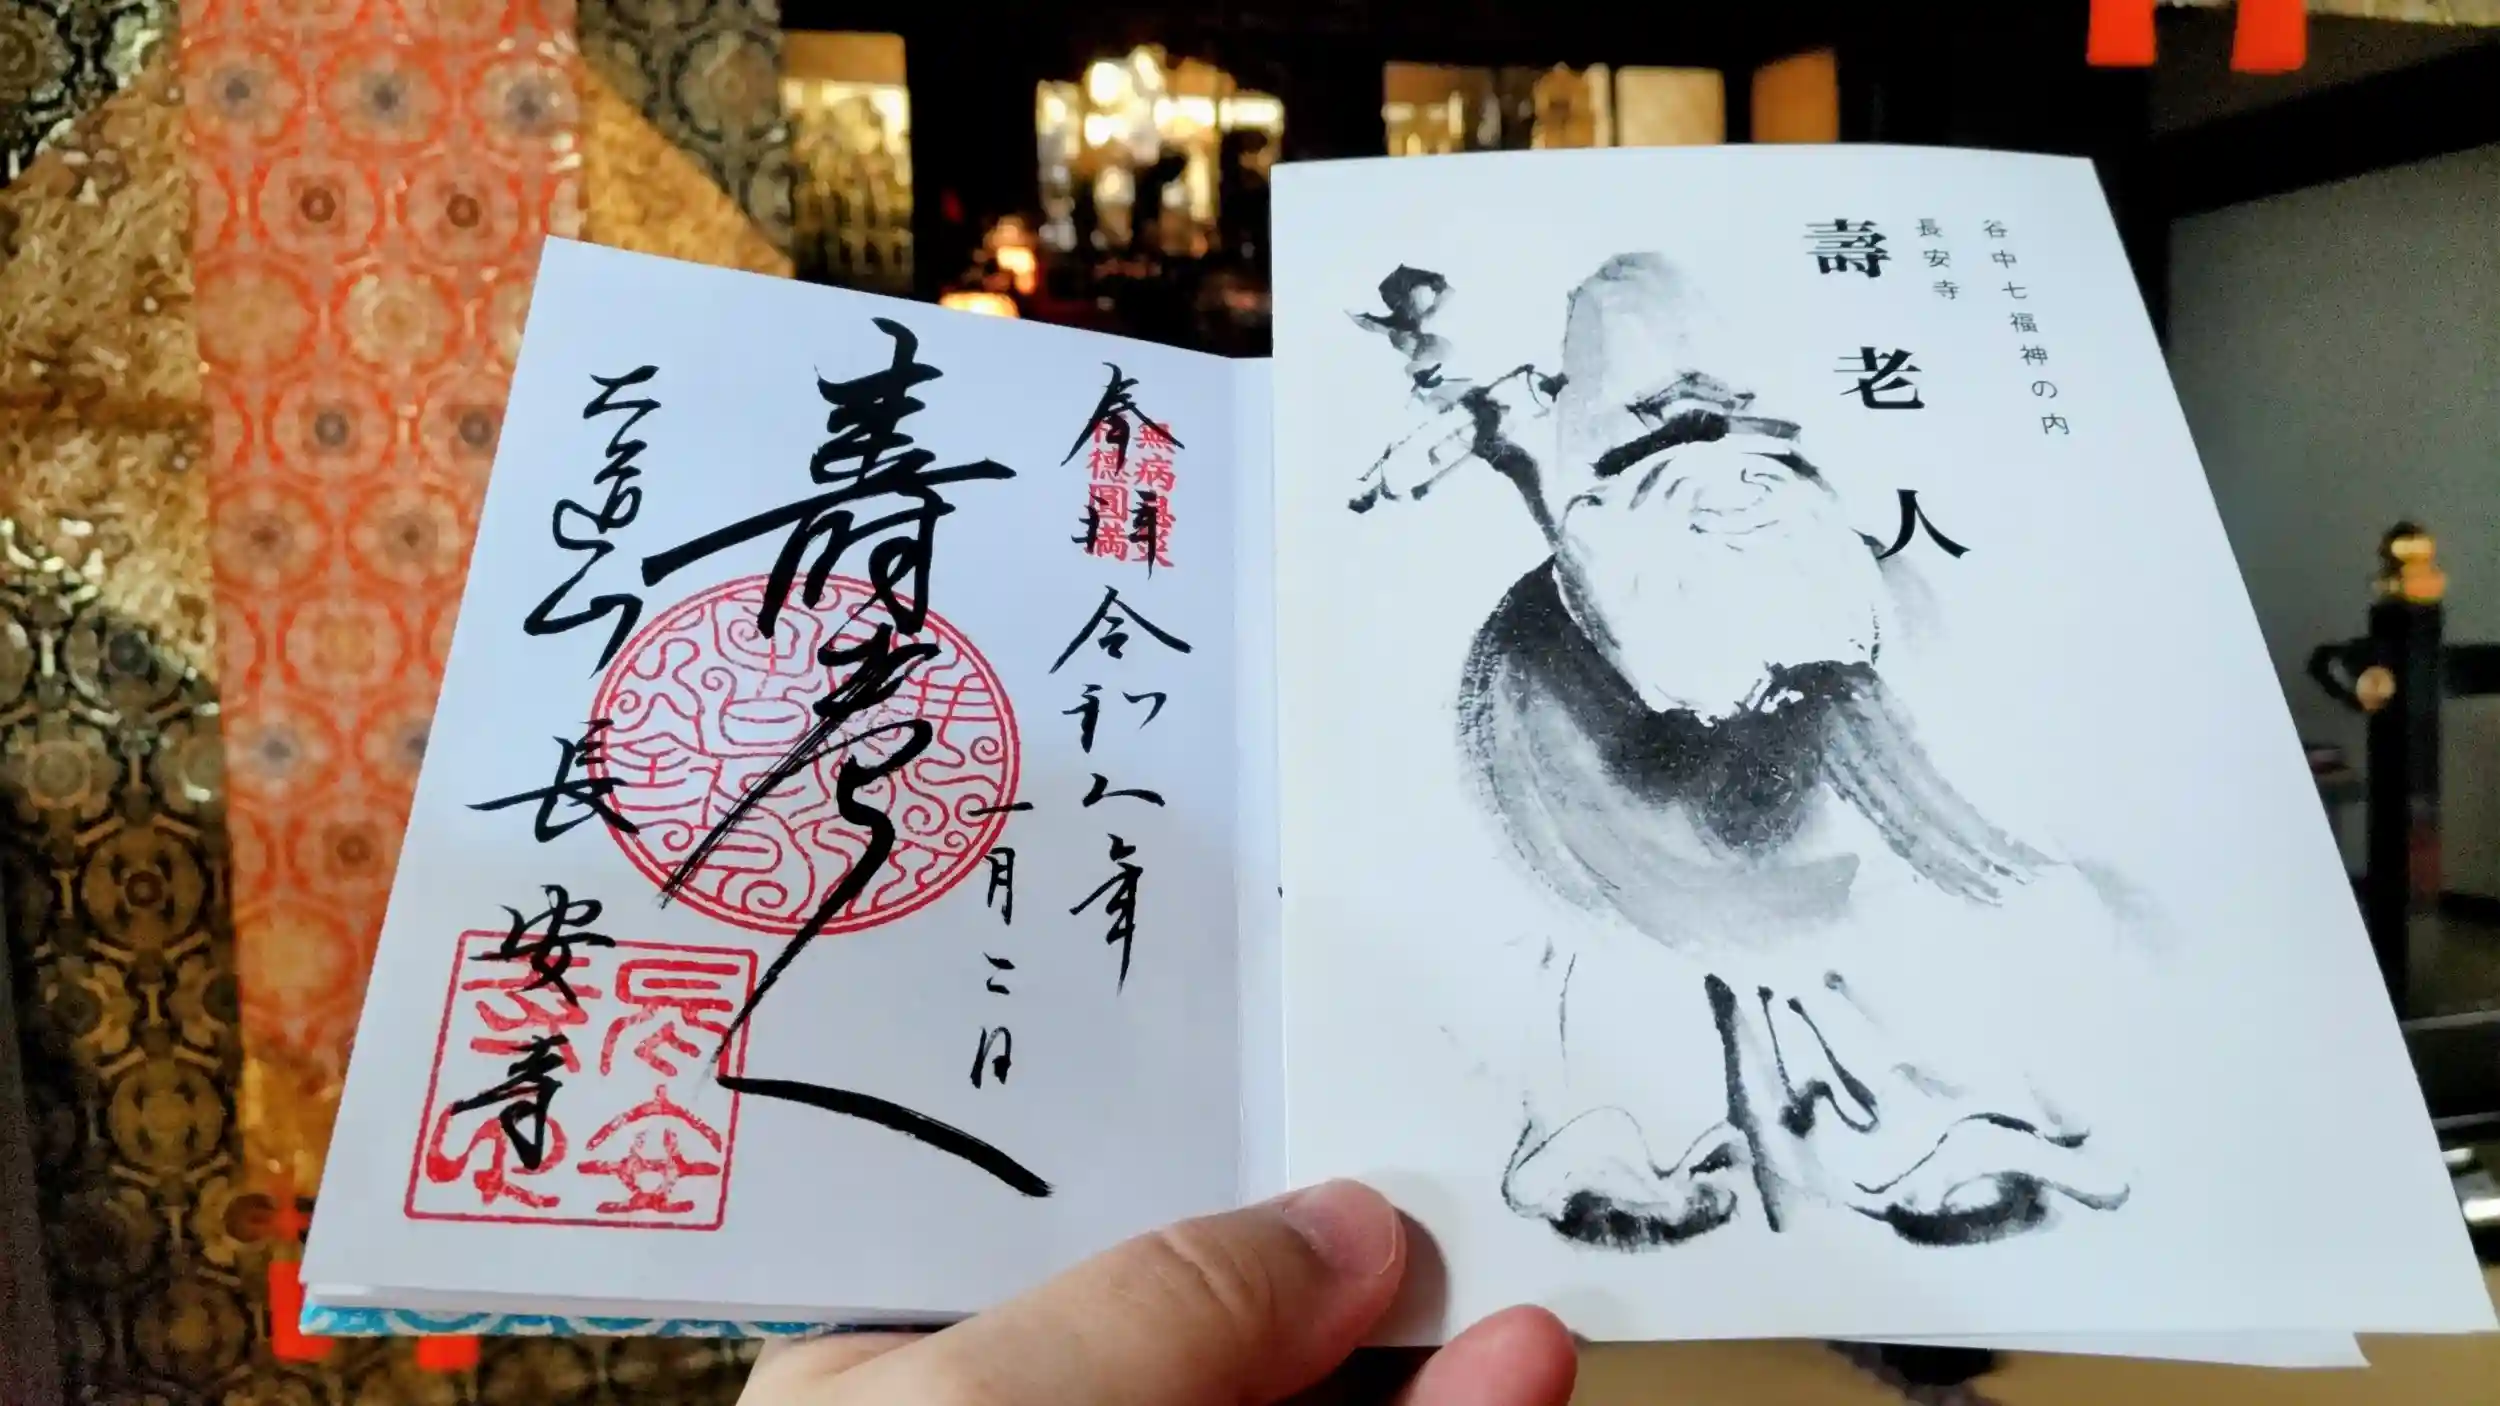 谷中七福神の内
長安寺
壽老人
無病息災
福徳圓満
奉拝 令和八年
一月二日
壽老人
大道山 長安寺
長安
寺印